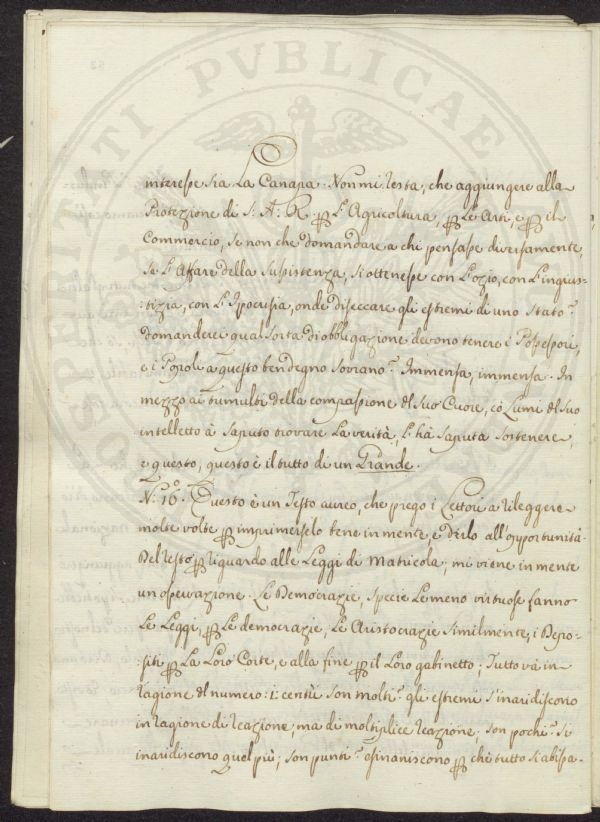 PROSPERITATI PVBLICAE
interesse sia La Canapa. Non mi resta, che aggiungere alla
Protezione di S: A: R: p L'Agricoltura, p Le Arti, e p il
Commercio, se non che domandare a chi pensasse diversamente,
se L'Affare della Susistenza, si ottenesse con L'ozio, con L'ingius-
:tizia, con L'Ipocrisia, onde diseccare gli estremi di uno Stato?
domanderei qual sorta di obbligazione devono tenere i Possessori,
e i Popoli a questo ben degno Sovrano? Immensa, immensa. In
mezzo ai tumulti della compassione dl Suo Cuore, cò Lumi dl Suo
intelletto à Saputo trovare La verità, L'hà Saputa Sostenere;
e questo, questo è il tutto di un Grande.
N.° 16.° Questo è un Testo aureo, che prego i Lettori a rileggere
molte volte p imprimerselo bene in mente, e dirlo all'opportunità.
Del resto p riguardo alle Leggi di Matricola, mi viene in mente
un osservazione. Le Democrazie, specie Le meno virtuose fanno
Le Leggi, p Le democrazie, Le Aristocrazie Similmente, i Depo-
:siti p La Loro Corte, e alla fine p il Loro gabinetto; Tutto và in
ragione dl numero: i: centri son molti? gli estremi s'inaridiscono
in ragione di reazione, ma di moltiplice reazione; son pochi? si
inaridiscono quel più; son punti? p che tutto si abissa-